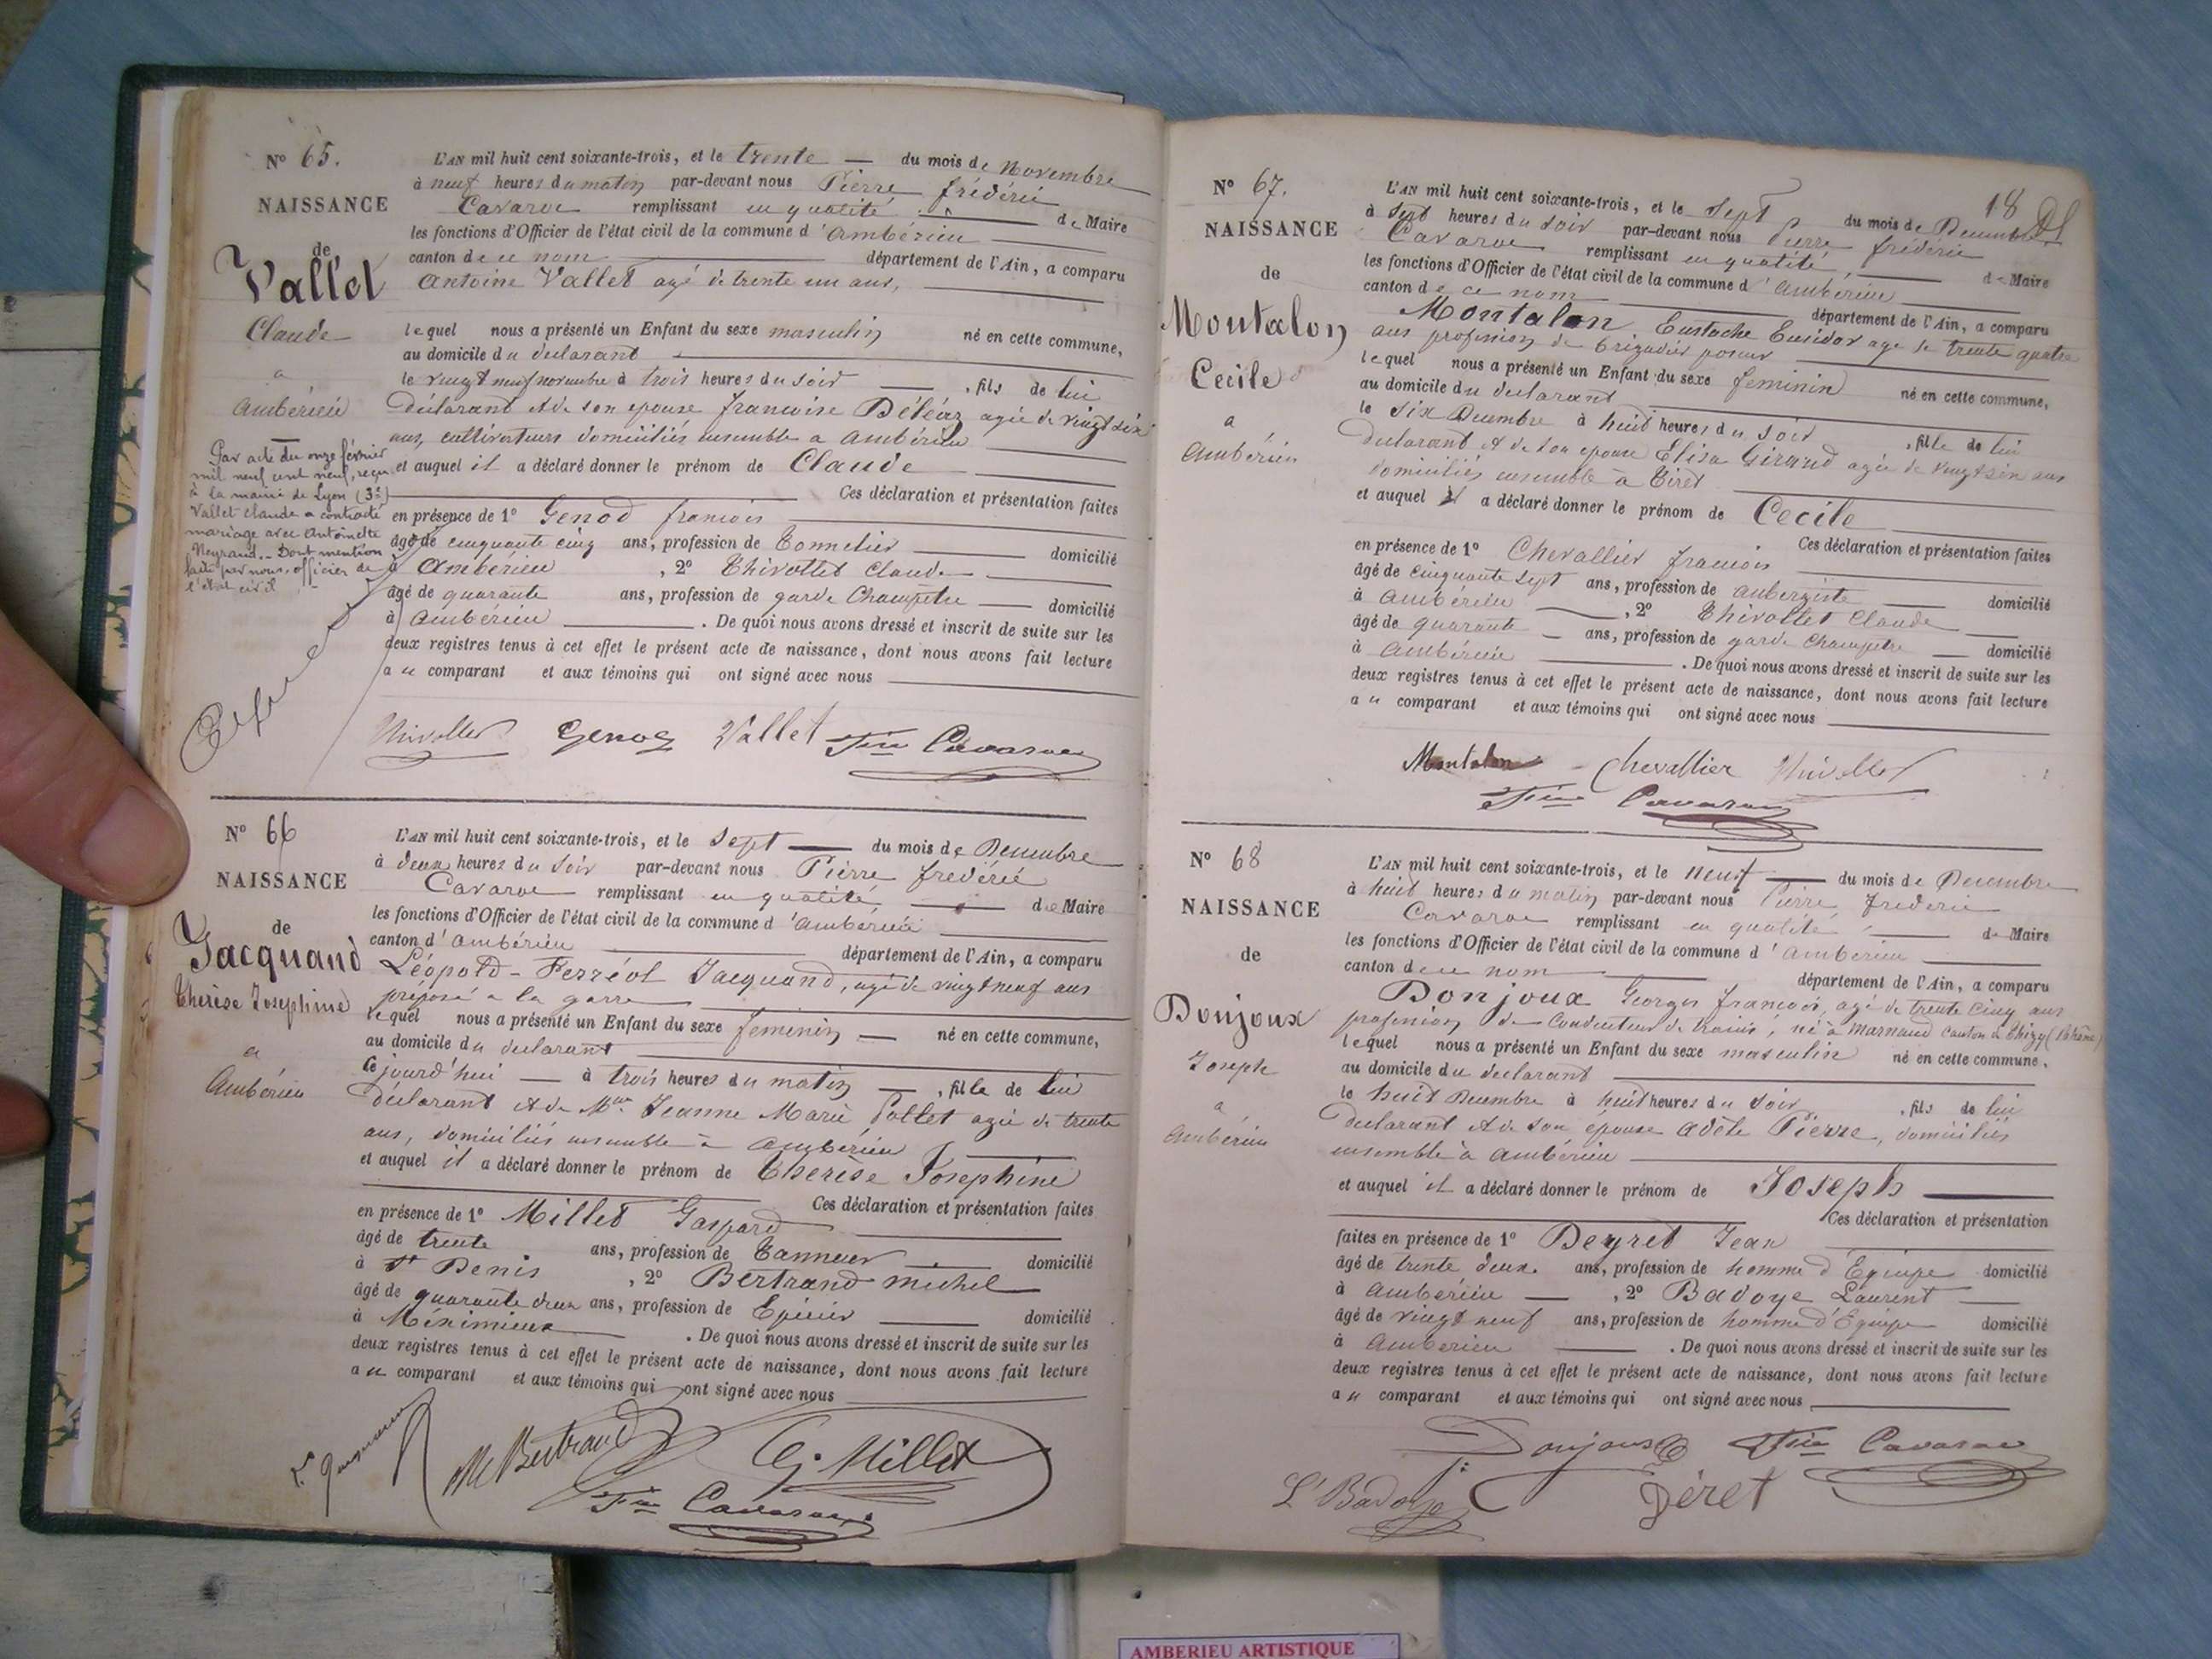 N° 65.
NAISSANCE
de
Vallet
Claude
a
Ambérieu
Par acte du onze février
mil neuf cent neuf, reçu
à la mairie de Lyon (3e)
Vallet Claude a contracté
mariage avec Antoinette
Neyrand. - Dont mention
faite par nous, officier de
l'état civil
L'AN mil huit cent soixante-trois, et le trente — du mois de Novembre
à neuf heures du matin par-devant nous Pierre frédéric
Cavaroc remplissant en qualité de Maire
les fonctions d'Officier de l'état civil de la commune d'Ambérieu
canton de ce nom département de l'Ain, a comparu
Antoine Vallet agé de trente un ans,
lequel nous a présenté un Enfant du sexe masculin né en cette commune,
au domicile du declarant
le vingt neuf novembre à trois heures du soir — , fils de lui
declarant et de son epouse francoise Béléaz agée de vingt six
ans, cultivateurs domiciliés ensemble a Ambérieu
et auquel il a déclaré donner le prénom de Claude
Ces déclaration et présentation faites
en présence de 1° Genod francois
âgé de cinquante cinq ans, profession de Tonnelier domicilié
à Ambérieu , 2° Thivollet Claude
âgé de quarante ans, profession de garde Champetre domicilié
à Ambérieu . De quoi nous avons dressé et inscrit de suite sur les
deux registres tenus à cet effet le présent acte de naissance, dont nous avons fait lecture
au comparant et aux témoins qui ont signé avec nous
Thivollet Genod Vallet Fric Cavaroc
N° 66
NAISSANCE
de
Jacquand
Therèse Josephine
a
Ambérieu
L'AN mil huit cent soixante-trois, et le sept — du mois de Decembre
à deux heures du soir par-devant nous Pierre frédéric
Cavaroc remplissant en qualité de Maire
les fonctions d'Officier de l'état civil de la commune d'Ambérieu
canton d'Ambérieu département de l'Ain, a comparu
Léopold-Ferréol Jacquand, agé de vingt neuf ans
préposé a la garre
lequel nous a présenté un Enfant du sexe feminin — né en cette commune,
au domicile du declarant
cejourd'hui — à trois heures du matin — , fille de lui
declarant et de Mme Jeanne Marie Pollet agée de trente
ans, domiciliés ensemble a Ambérieu
et auquel il a déclaré donner le prénom de Therèse Josephine
Ces déclaration et présentation faites
en présence de 1° Millet Gaspard
âgé de trente ans, profession de Tanneur domicilié
à St Denis , 2° Bertrand michel
âgé de quarante deux ans, profession de Epicier domicilié
à Méximieux . De quoi nous avons dressé et inscrit de suite sur les
deux registres tenus à cet effet le présent acte de naissance, dont nous avons fait lecture
au comparant et aux témoins qui ont signé avec nous
M Bertrand G. Millet
Fric Cavaroc
18
N° 67.
NAISSANCE
de
Montalon
Cecile
a
Ambérieu
L'AN mil huit cent soixante-trois, et le Sept du mois de Decembre
à sept heures du soir par-devant nous Pierre frédéric
Cavaroc remplissant en qualité de Maire
les fonctions d'Officier de l'état civil de la commune d'Ambérieu
canton de ce nom département de l'Ain, a comparu
Montalon Eustache Eusidor age de trente quatre
ans profession de brigadier poseur
lequel nous a présenté un Enfant du sexe feminin né en cette commune,
au domicile du declarant
le six Decembre à huit heures du soir , fille de lui
declarant et de son epouse Elisa Girard agée de vingt six ans
domiciliés ensemble à Tiret
et auquel il a déclaré donner le prénom de Cecile
Ces déclaration et présentation faites
en présence de 1° Chevallier francois
âgé de cinquante sept ans, profession de aubergiste domicilié
à Ambérieu , 2° Thivollet Claude
âgé de quarante — ans, profession de garde Champetre domicilié
à Ambérieu . De quoi nous avons dressé et inscrit de suite sur les
deux registres tenus à cet effet le présent acte de naissance, dont nous avons fait lecture
au comparant et aux témoins qui ont signé avec nous
Montalon Chevallier Thivollet
Fric Cavaroc
N° 68
NAISSANCE
de
Donjoux
Joseph
a
Ambérieu
L'AN mil huit cent soixante-trois, et le neuf — du mois de Decembre
à huit heures du matin par-devant nous Pierre frederic
Cavaroc remplissant en qualité de Maire
les fonctions d'Officier de l'état civil de la commune d'Ambérieu
canton de ce nom département de l'Ain, a comparu
Donjoux Georges francois, agé de trente cinq ans
profession de Conducteur de trains, né à Marnand canton de Thizy (Rhône)
lequel nous a présenté un Enfant du sexe masculin né en cette commune,
au domicile du declarant
le huit Decembre à huit heures du soir , fils de lui
declarant et de son épouse adèle Pierre, domiciliés
ensemble à Ambérieu
et auquel il a déclaré donner le prénom de Joseph
Ces déclaration et présentation
faites en présence de 1° Deyret Jean
âgé de trente deux ans, profession de homme d'Equipe domicilié
à Ambérieu — , 2° Badoye Laurent
âgé de vingt neuf ans, profession de homme d'Equipe domicilié
à Amberieu . De quoi nous avons dressé et inscrit de suite sur les
deux registres tenus à cet effet le présent acte de naissance, dont nous avons fait lecture
au comparant et aux témoins qui ont signé avec nous
Donjoux Fric Cavaroc
L Badoye Déret
AMBERIEU ARTISTIQUE